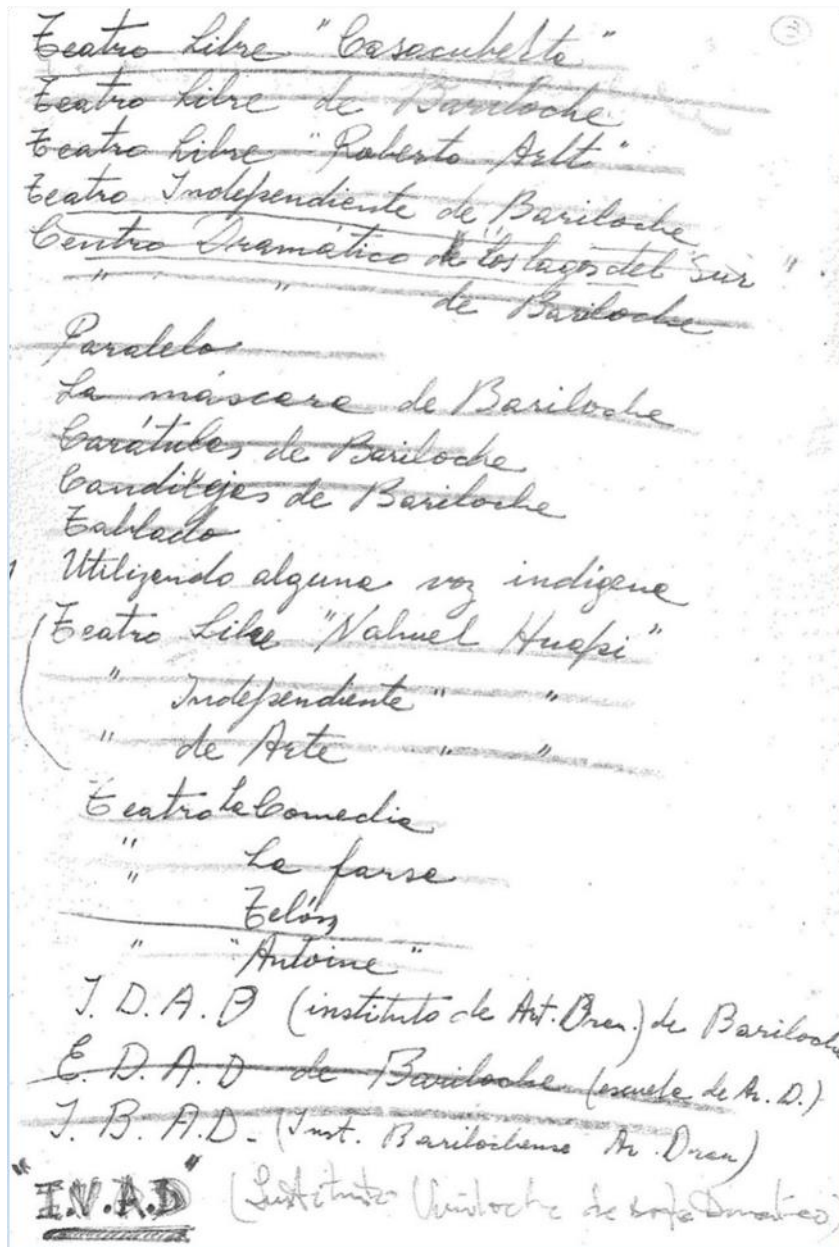 3
Teatro Libre "Casacuberta"
Teatro Libre de Bariloche
Teatro Libre "Roberto Arlt"
Teatro Independiente de Bariloche
Centro Dramático de los lagos del Sur "
" " de Bariloche
Paralelo
La máscara de Bariloche
Carátulas de Bariloche
Candilejas de Bariloche
Tablado
Utilizando alguna voz indígena
Teatro Libre "Nahuel Huapi"
" Independiente " "
" de Arte " "
Teatro La Comedia
" La farsa
" Telón
" "Antoine"
I. D. A. B (instituto de Art. Dram.) de Bariloche
E. D. A. D de Bariloche (escuela de Ar. D.)
I. B. A. D. (Inst. Barilochense Ar. Dram)
"I.V.A.D" (Instituto Vuriloche de Dramático)